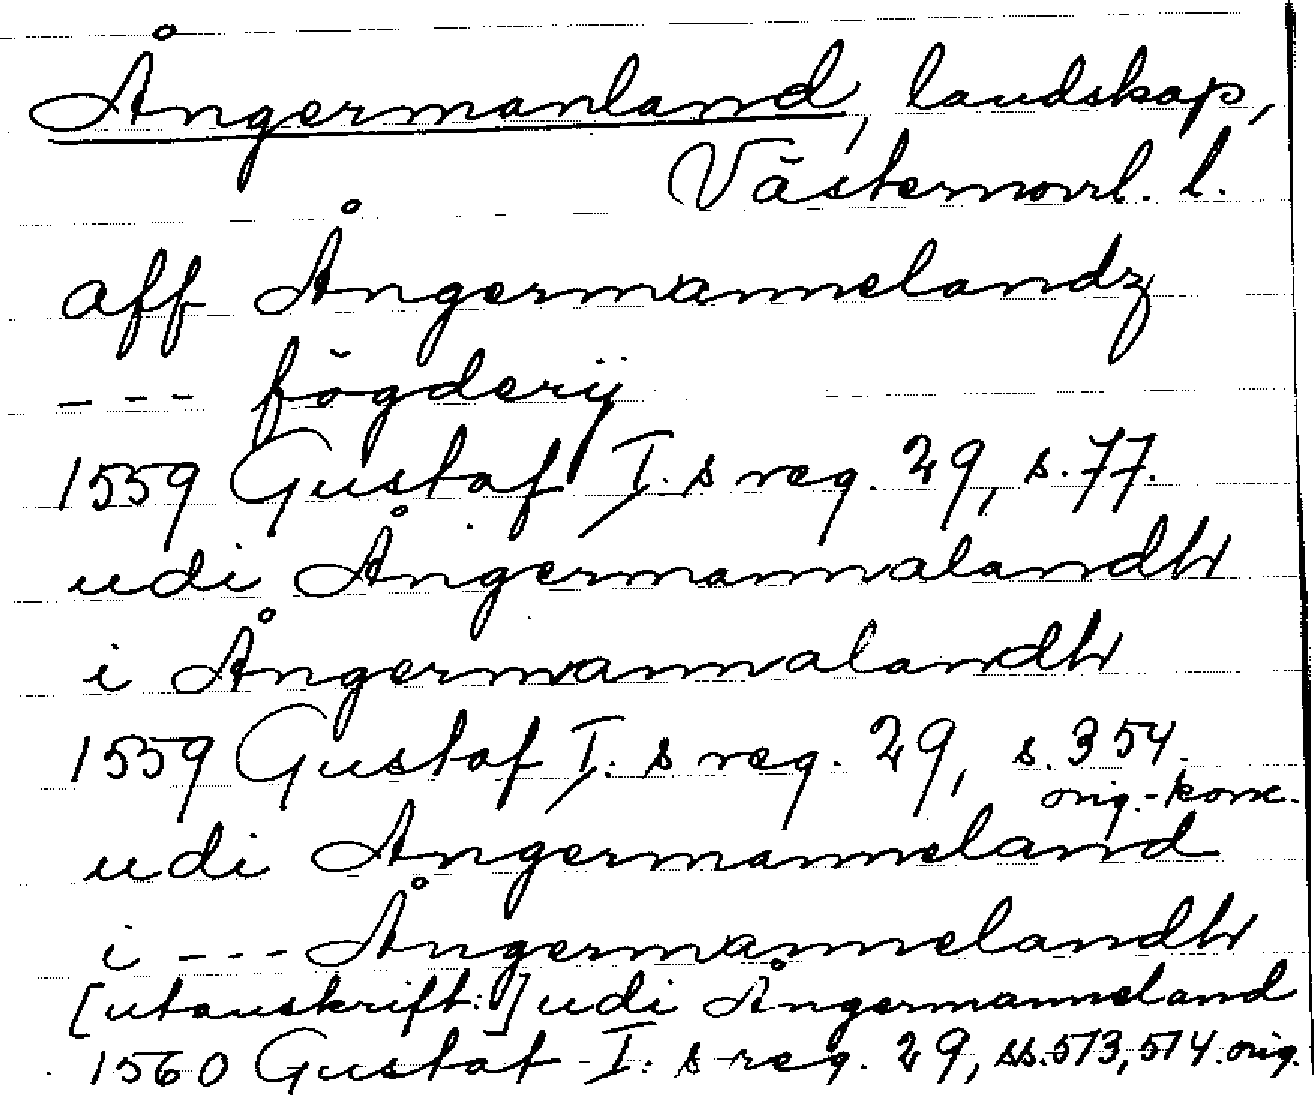 Ångermanland, landskap,
Västernorrl. l.
aff Ångermannelandz
--- fögderij
1559 Gustaf I.s reg. 29, s. 77.
udi Ångermannalandh
i Ångermannalandh
1559 Gustaf I:s reg. 29, s. 354.
orig.-konc.
udi Angermanneland
i --- Ångermannelandh
[utanskrift:] udi Ångermanneland
1560 Gustaf I:s reg. 29, ss. 573, 574. orig.